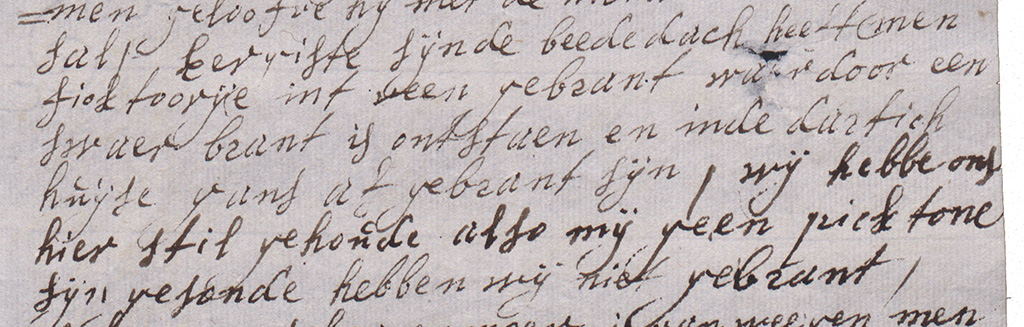 =men geloofve hij met de
sals eerriste sijnde beededach heeftmen
ficktoorije int veen gebrant waerdoor een
swaer brant is ontstaen en inde dartich
huijse gans af gebrant sijn, wij hebbe ons
hier stil gehoude also mij geen pick tone
sijn gesonde hebben wij niet gebrant,
is van weegen men